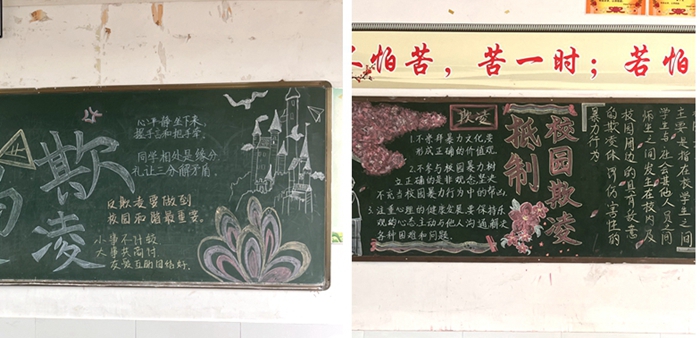 欺凌
心平静坐下来,
握手言和把手牵。
同学相处是缘分,
礼让三分
反欺凌要做到
校园和谐最重要。
小事不计较
大事共商讨
友爱互助团结好。
怕苦,苦一时;若怕
欺凌
1.不崇拜暴力文化要
形成正确价值观
2.不参与校园暴力树
立正确的是非观念坚决
不充当校园暴力行为中的帮凶
3.注重心理的健康发展要保持乐
观的心态主动与他人沟通解决
各种困难和问题。
抵制
校园欺凌
主要是指在学生之间
学生与社会其他人员之间
师生之间发生在校内及
校园周边的具有敌意
的欺凌体 伤害性的
暴力行为